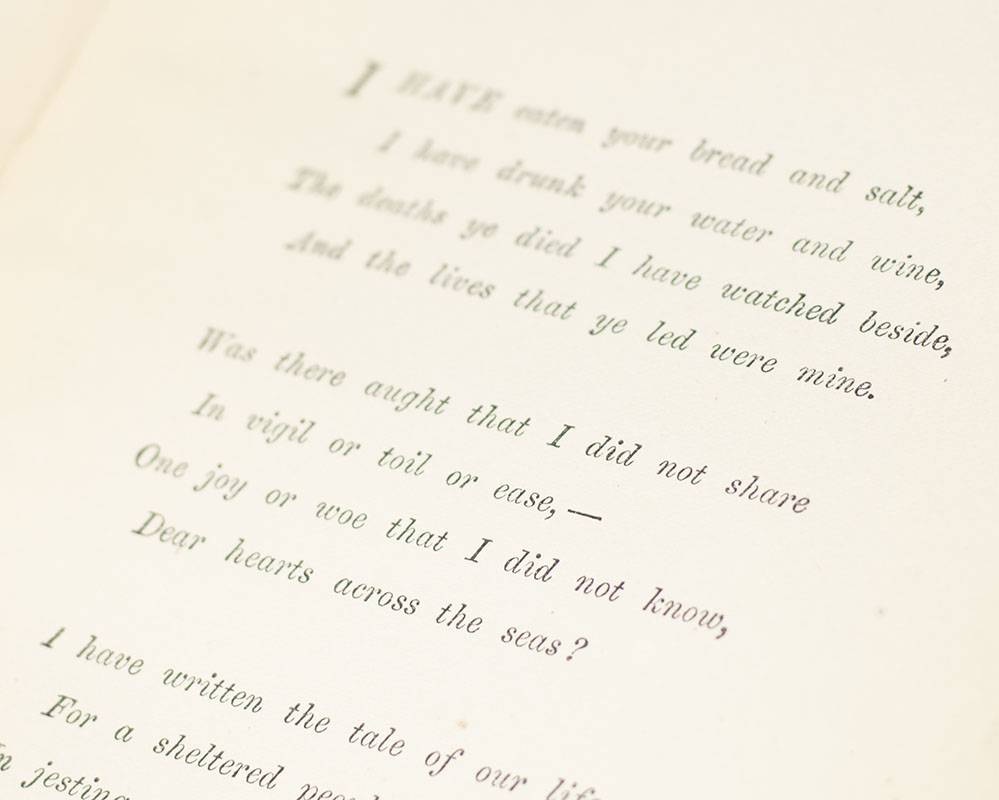 I HAVE eaten your bread and salt,
I have drunk your water and wine,
The deaths ye died I have watched beside,
And the lives that ye led were mine.
Was there aught that I did not share
In vigil or toil or ease,—
One joy or woe that I did not know,
Dear hearts across the seas?
I have written the tale of our
For a sheltered
jesting